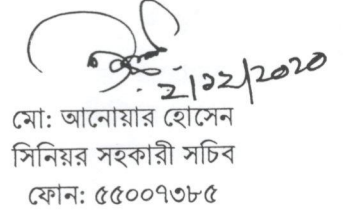 ২/১২/২০২০
মো: আনোয়ার হোসেন
সিনিয়র সহকারী সচিব
ফোন: ৫৫০০৭৩৮৫